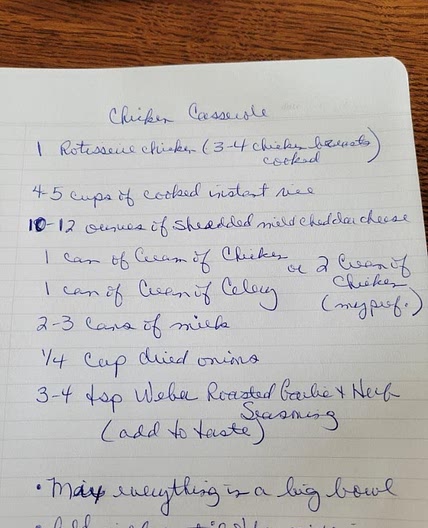 Chicken Casserole
1 Rotisserie chicken (3-4 chicken breasts cooked)
4-5 cups of cooked instant rice
10-12 ounces of shredded mild cheddar cheese
1 can of Cream of Chicken
1 can of Cream of Celery
or 2 Cream of
Chicken
(my pref.)
2-3 cans of milk
1/4 cup dried onions
3-4 tsp Weber Roasted Garlic & Herb
Seasoning
(add to taste)
• Mix everything in a big bowl